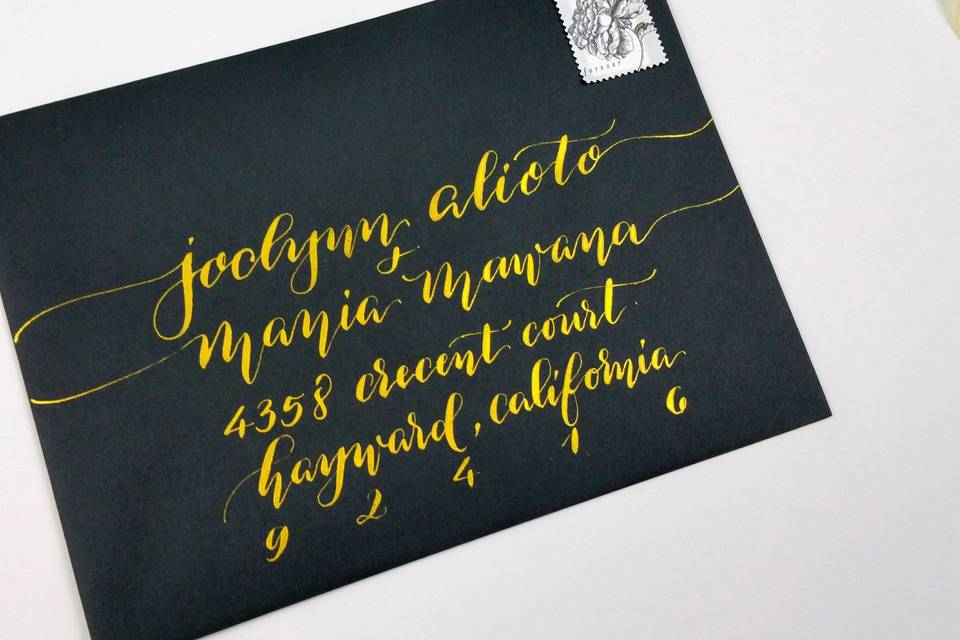 forever
joclynn alioto
mania mawana
4358 crecent court
hayward, california
9 2 4 1 6